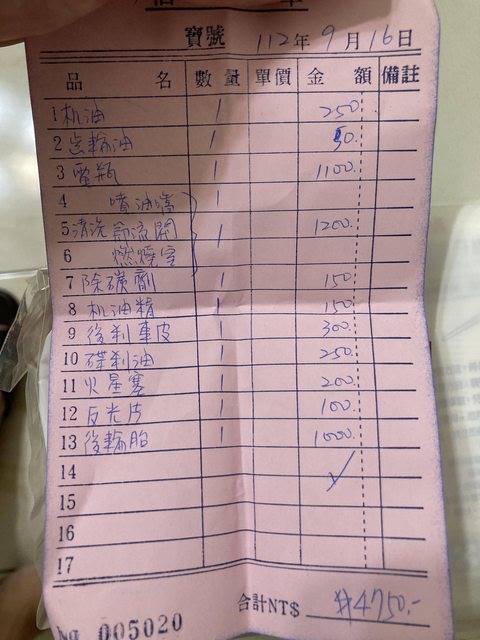 寶號 112年 9月 16日
品 名 數量 單價 金 額 備註
1 机油 1 250.
2 齒輪油 1 50.
3 電瓶 1 1100.
4 噴油嘴
5 清洗 節流閥 1 1200.
6 燃燒室
7 除碳劑 1 150.
8 机油精 1 150.
9 後刹車皮 1 300.
10 碟刹油 1 250.
11 火星塞 1 200.
12 反光片 1 100.
13 後輪胎 1 1000.
14
15
16
17
合計NT$ #4750.-
No 005020